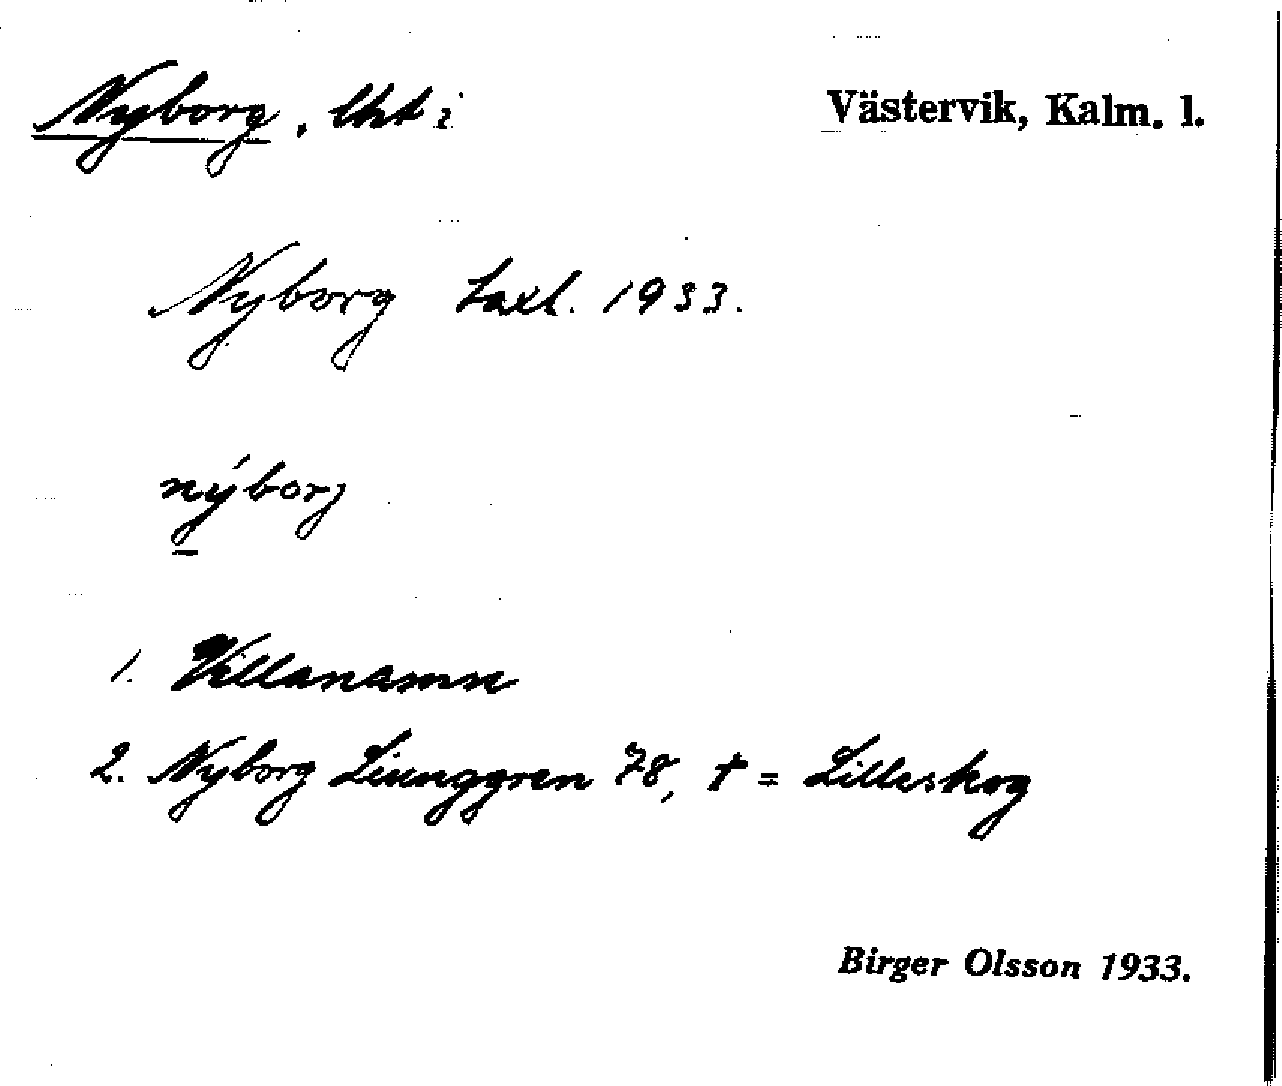 Nyborg, lht i Västervik, Kalm. l.
Nyborg Taxl. 1933.
nýborj
1. Villanamn
2. Nyborg Liunggren 78, † = Lilleskog
Birger Olsson 1933.